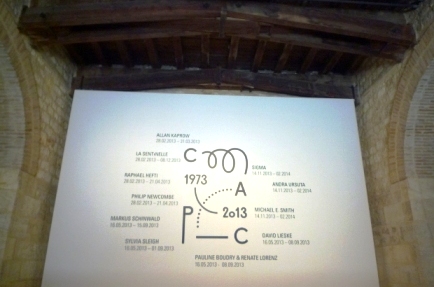 ALLAN KAPROW
28.02.2013 – 21.04.2013
LA SENTINELLE
28.02.2013 – 08.12.2013
C
SIGMA
14.11.2013 – 02.2014
RAPHAEL HEFTI
28.02.2013 – 21.04.2013
1973
A
ANDRA URSUTA
14.11.2013 – 02.2014
PHILIP NEWCOMBE
28.02.2013 – 21.04.2013
P
2013
MICHAEL E. SMITH
14.11.2013 – 02.2014
MARKUS SCHINWALD
16.05.2013 – 15.09.2013
C
DAVID LIESKE
16.05.2013 – 08.09.2013
SYLVIA SLEIGH
PAULINE BOUDRY & RENATE LORENZ
16.05.2013 – 08.09.2013